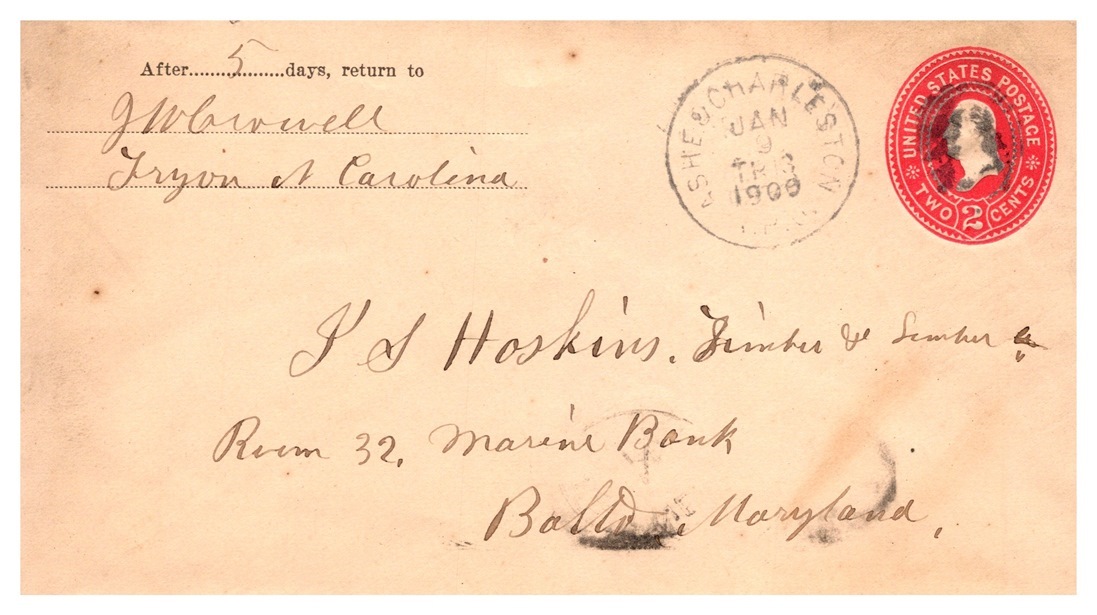 After 5 days, return to
J W Crowell
Tryon N Carolina
ASHE & CHARLESTON
JAN
9
TR 13
1900
UNITED STATES POSTAGE
TWO 2 CENTS
J S Hoskins. Timber & Limber Co
Room 32. Marine Bank
Balto, Maryland,